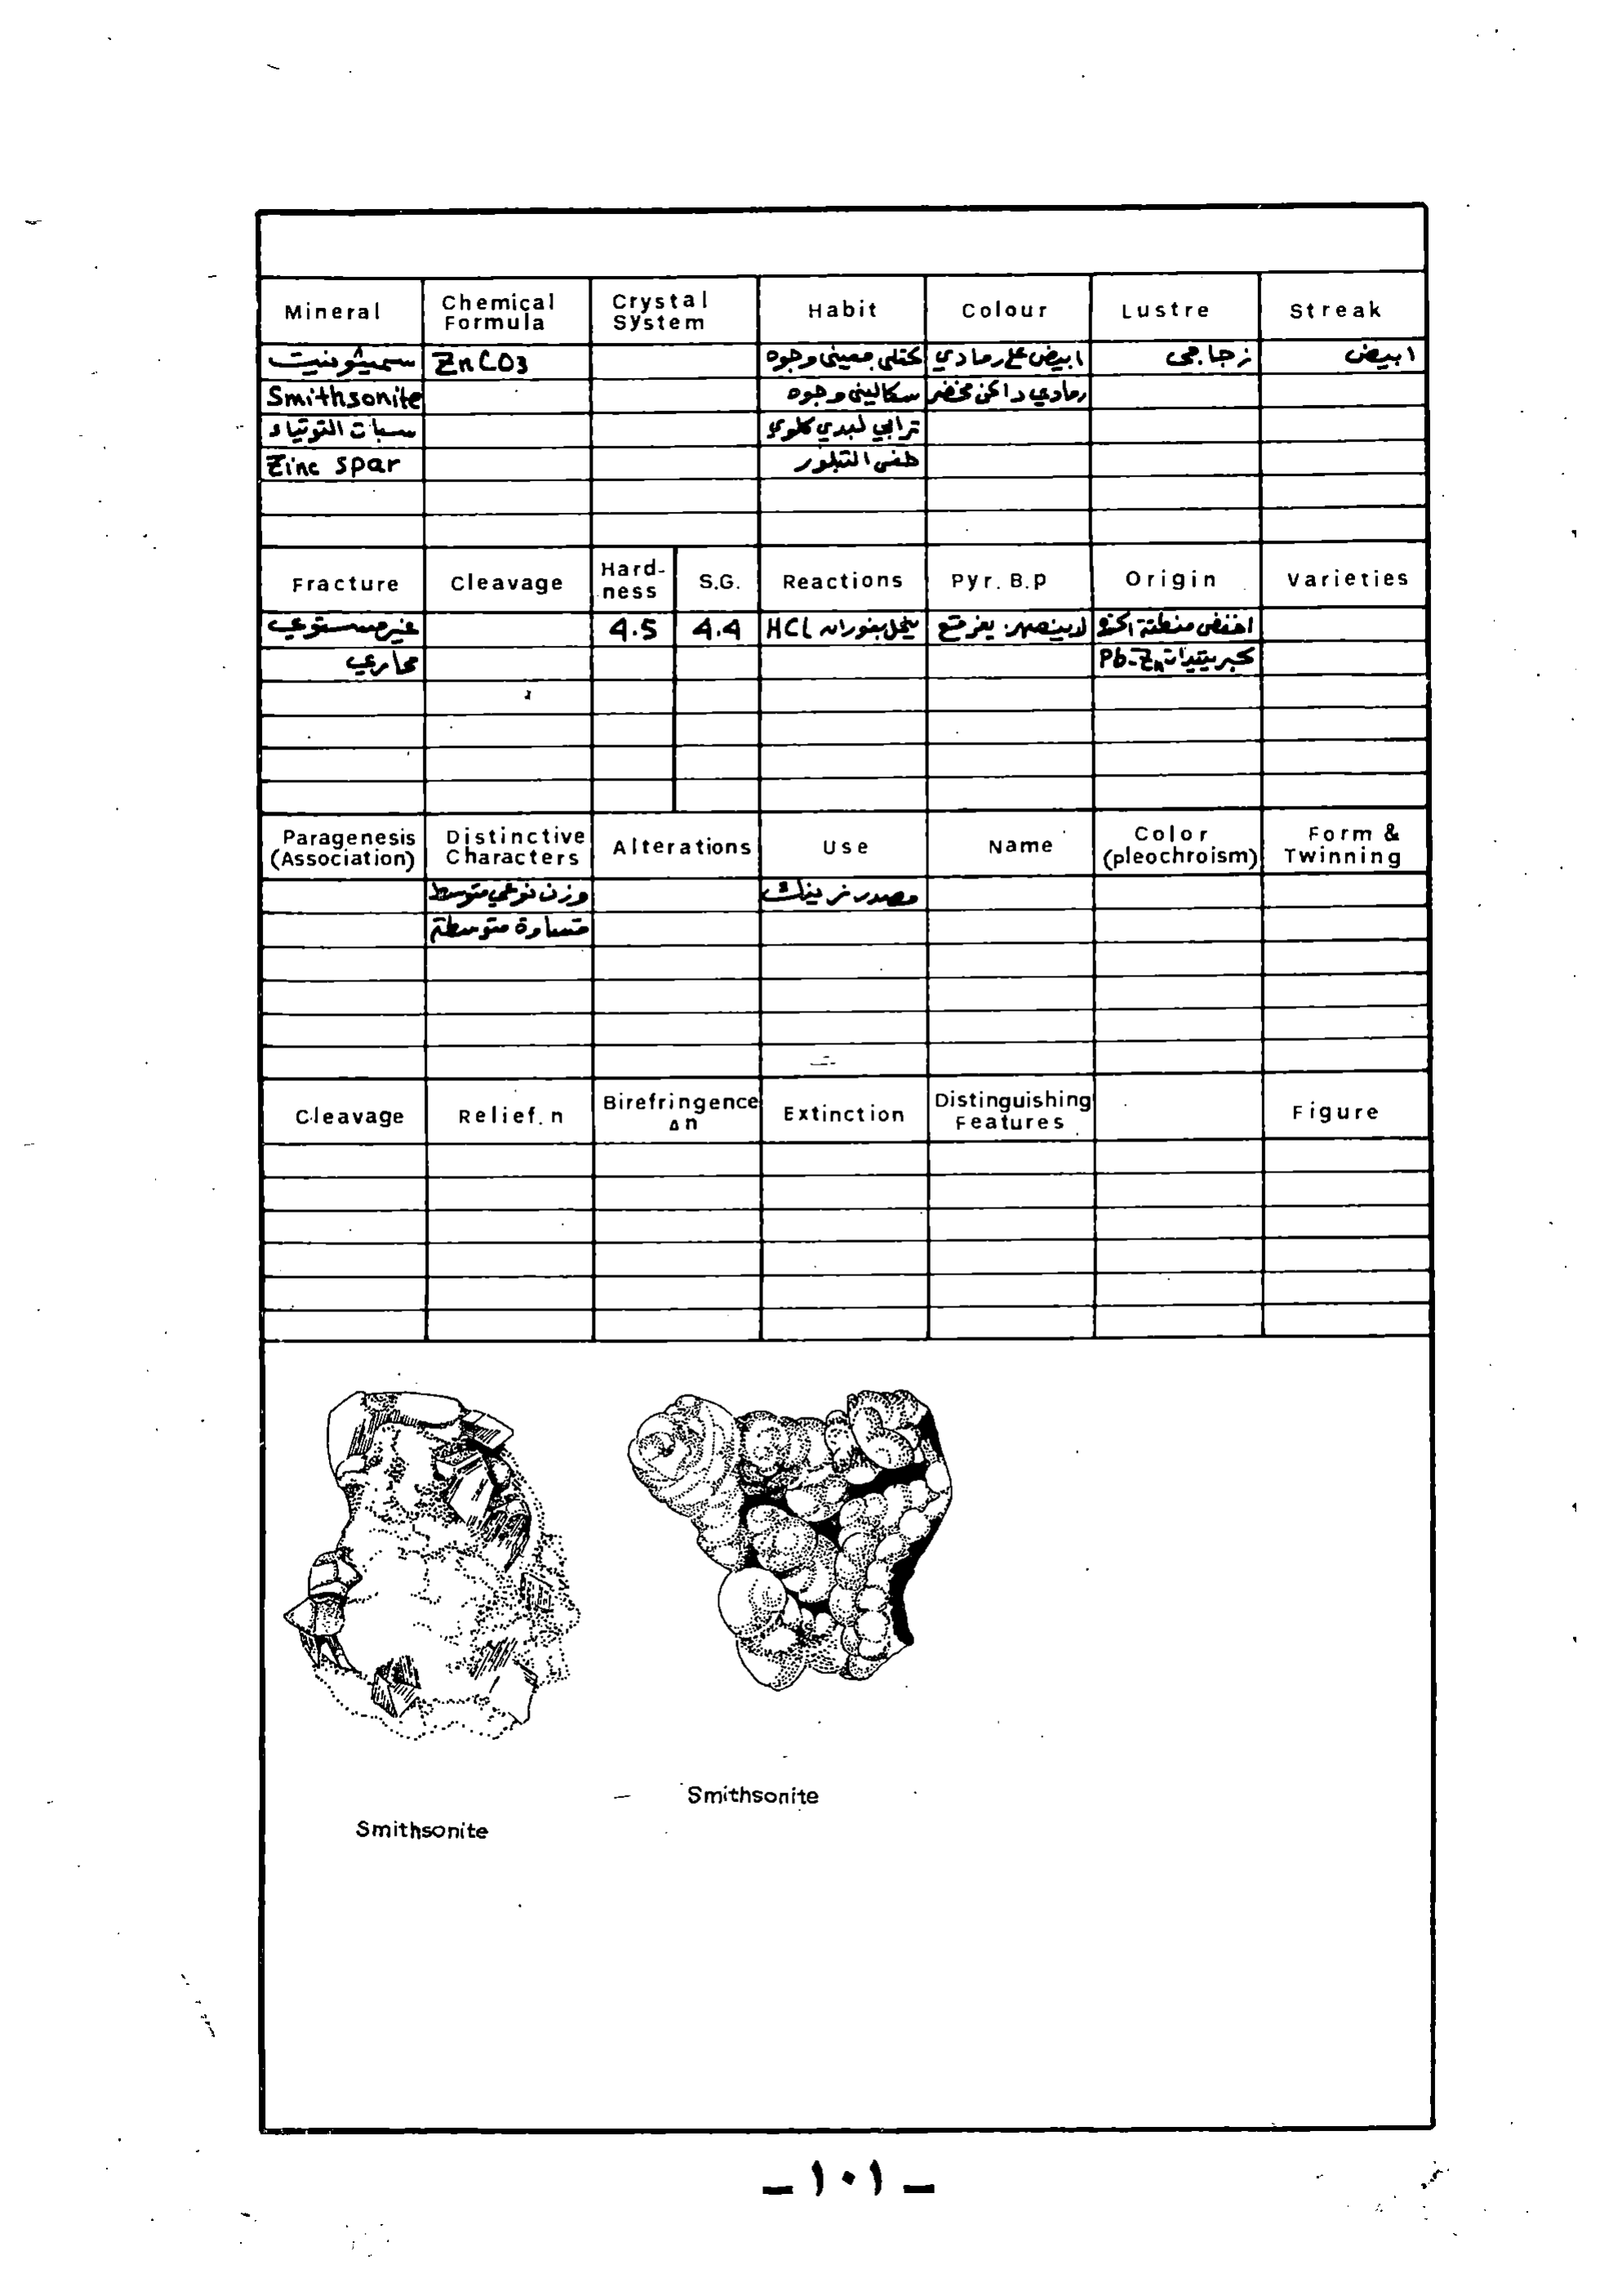 Mineral Chemical Formula Crystal System Habit Colour Lustre Streak
سميثونيت ZnCO3 كتلي معيني وجوه ابيض على رمادي زجاجي ابيض
Smithsonite سكاليني وجوه رمادي داكن مخضر
سبات التوتياء ترابي لبدي كلوي
Zinc spar خفي التبلور
Fracture Cleavage Hard-ness S.G. Reactions Pyr. B.p Origin Varieties
غير مستوي 4.5 4.4 HCl ينحل بفوران لا ينصهر، اخفض منطقة
محاري كبريتيدات Pb-Zn
Paragenesis (Association) Distinctive Characters Alterations Use Name Color (pleochroism) Form & Twinning
وزن نوعي متوسط مصدر زينك
قساوة متوسطة
Cleavage Relief. n Birefringence Δn Extinction Distinguishing Features Figure
Smithsonite
Smithsonite
– ١٠١ –